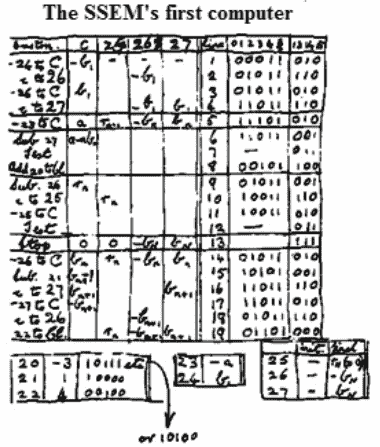 The SSEM's first computer
C 25 26 27 line 0 1 2 3 4 13 14 15
-24 to C -b1 - - - 1 00011 010
c to 26 -b1 2 01011 110
-26 to C b1 3 01011 010
c to 27 -b1 b1 4 11011 110
-23 to C a -bn bn 5 11101 010
Sub. 27 a-bn 6 11011 001
Test 7 - 011
Add 20 to bl. 8 00101 100
Sub. 26 rn 9 01011 001
c to 25 rn 10 10011 110
-25 to C 11 10011 010
Test 12 - 011
Stop 0 0 -bN bN 13 111
-26 to C bn rn -bn bn 14 01011 010
Sub. 21 bn+1 15 10101 001
c to 27 bn+1 bn+1 16 11011 110
-27 to C -bn+1 17 11011 010
c to 26 -bn+1 18 01011 110
22 to bl. rn -bn+1 bn+1 19 01101 000
init. final
20 -3 10111 etc 23 -a 25 -
21 1 10000 24 b1 26 - -bN
22 4 00100 27 - bN
or 10100